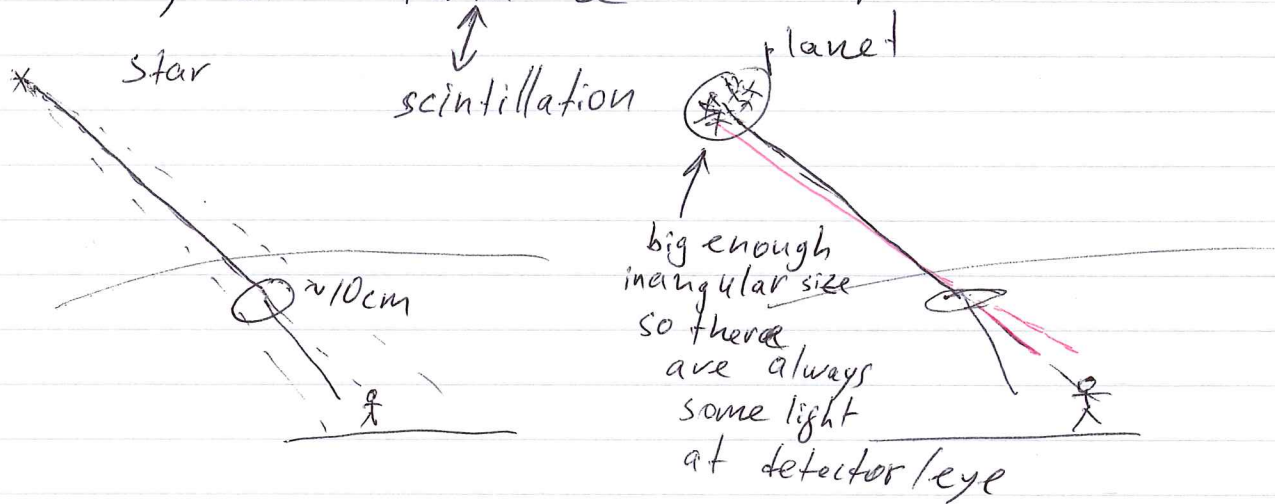 star
scintillation
planet
~10cm
big enough
inangular size
so there
are always
some light
at detector/eye